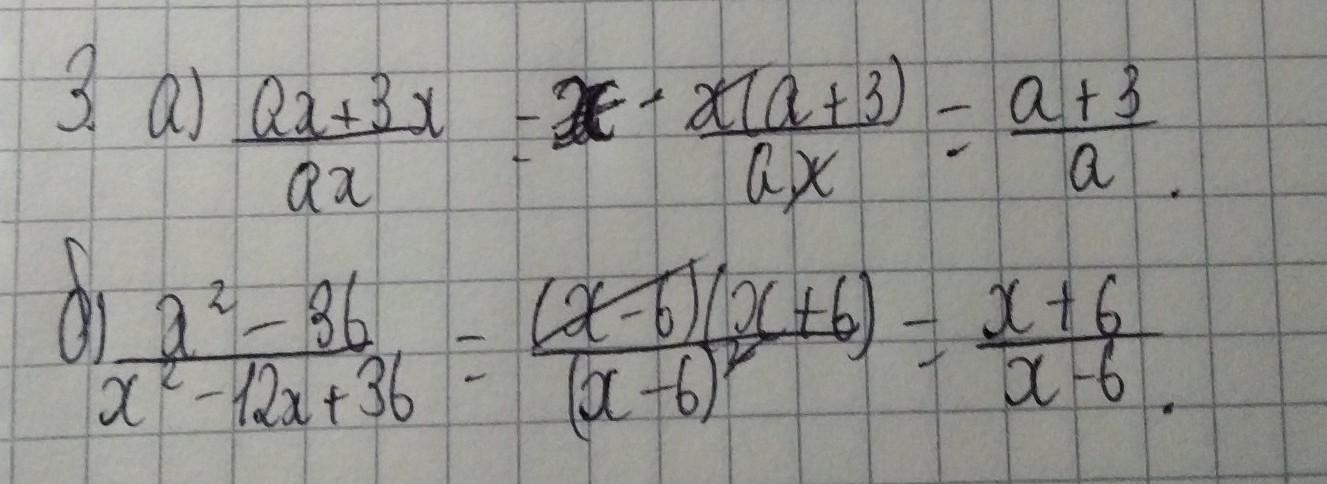 3. а) (ax+3x)/(ax) = x(a+3)/(ax) = (a+3)/a.
б) (x²-36)/(x²-12x+36) = (x-6)(x+6)/(x-6)² = (x+6)/(x-6).